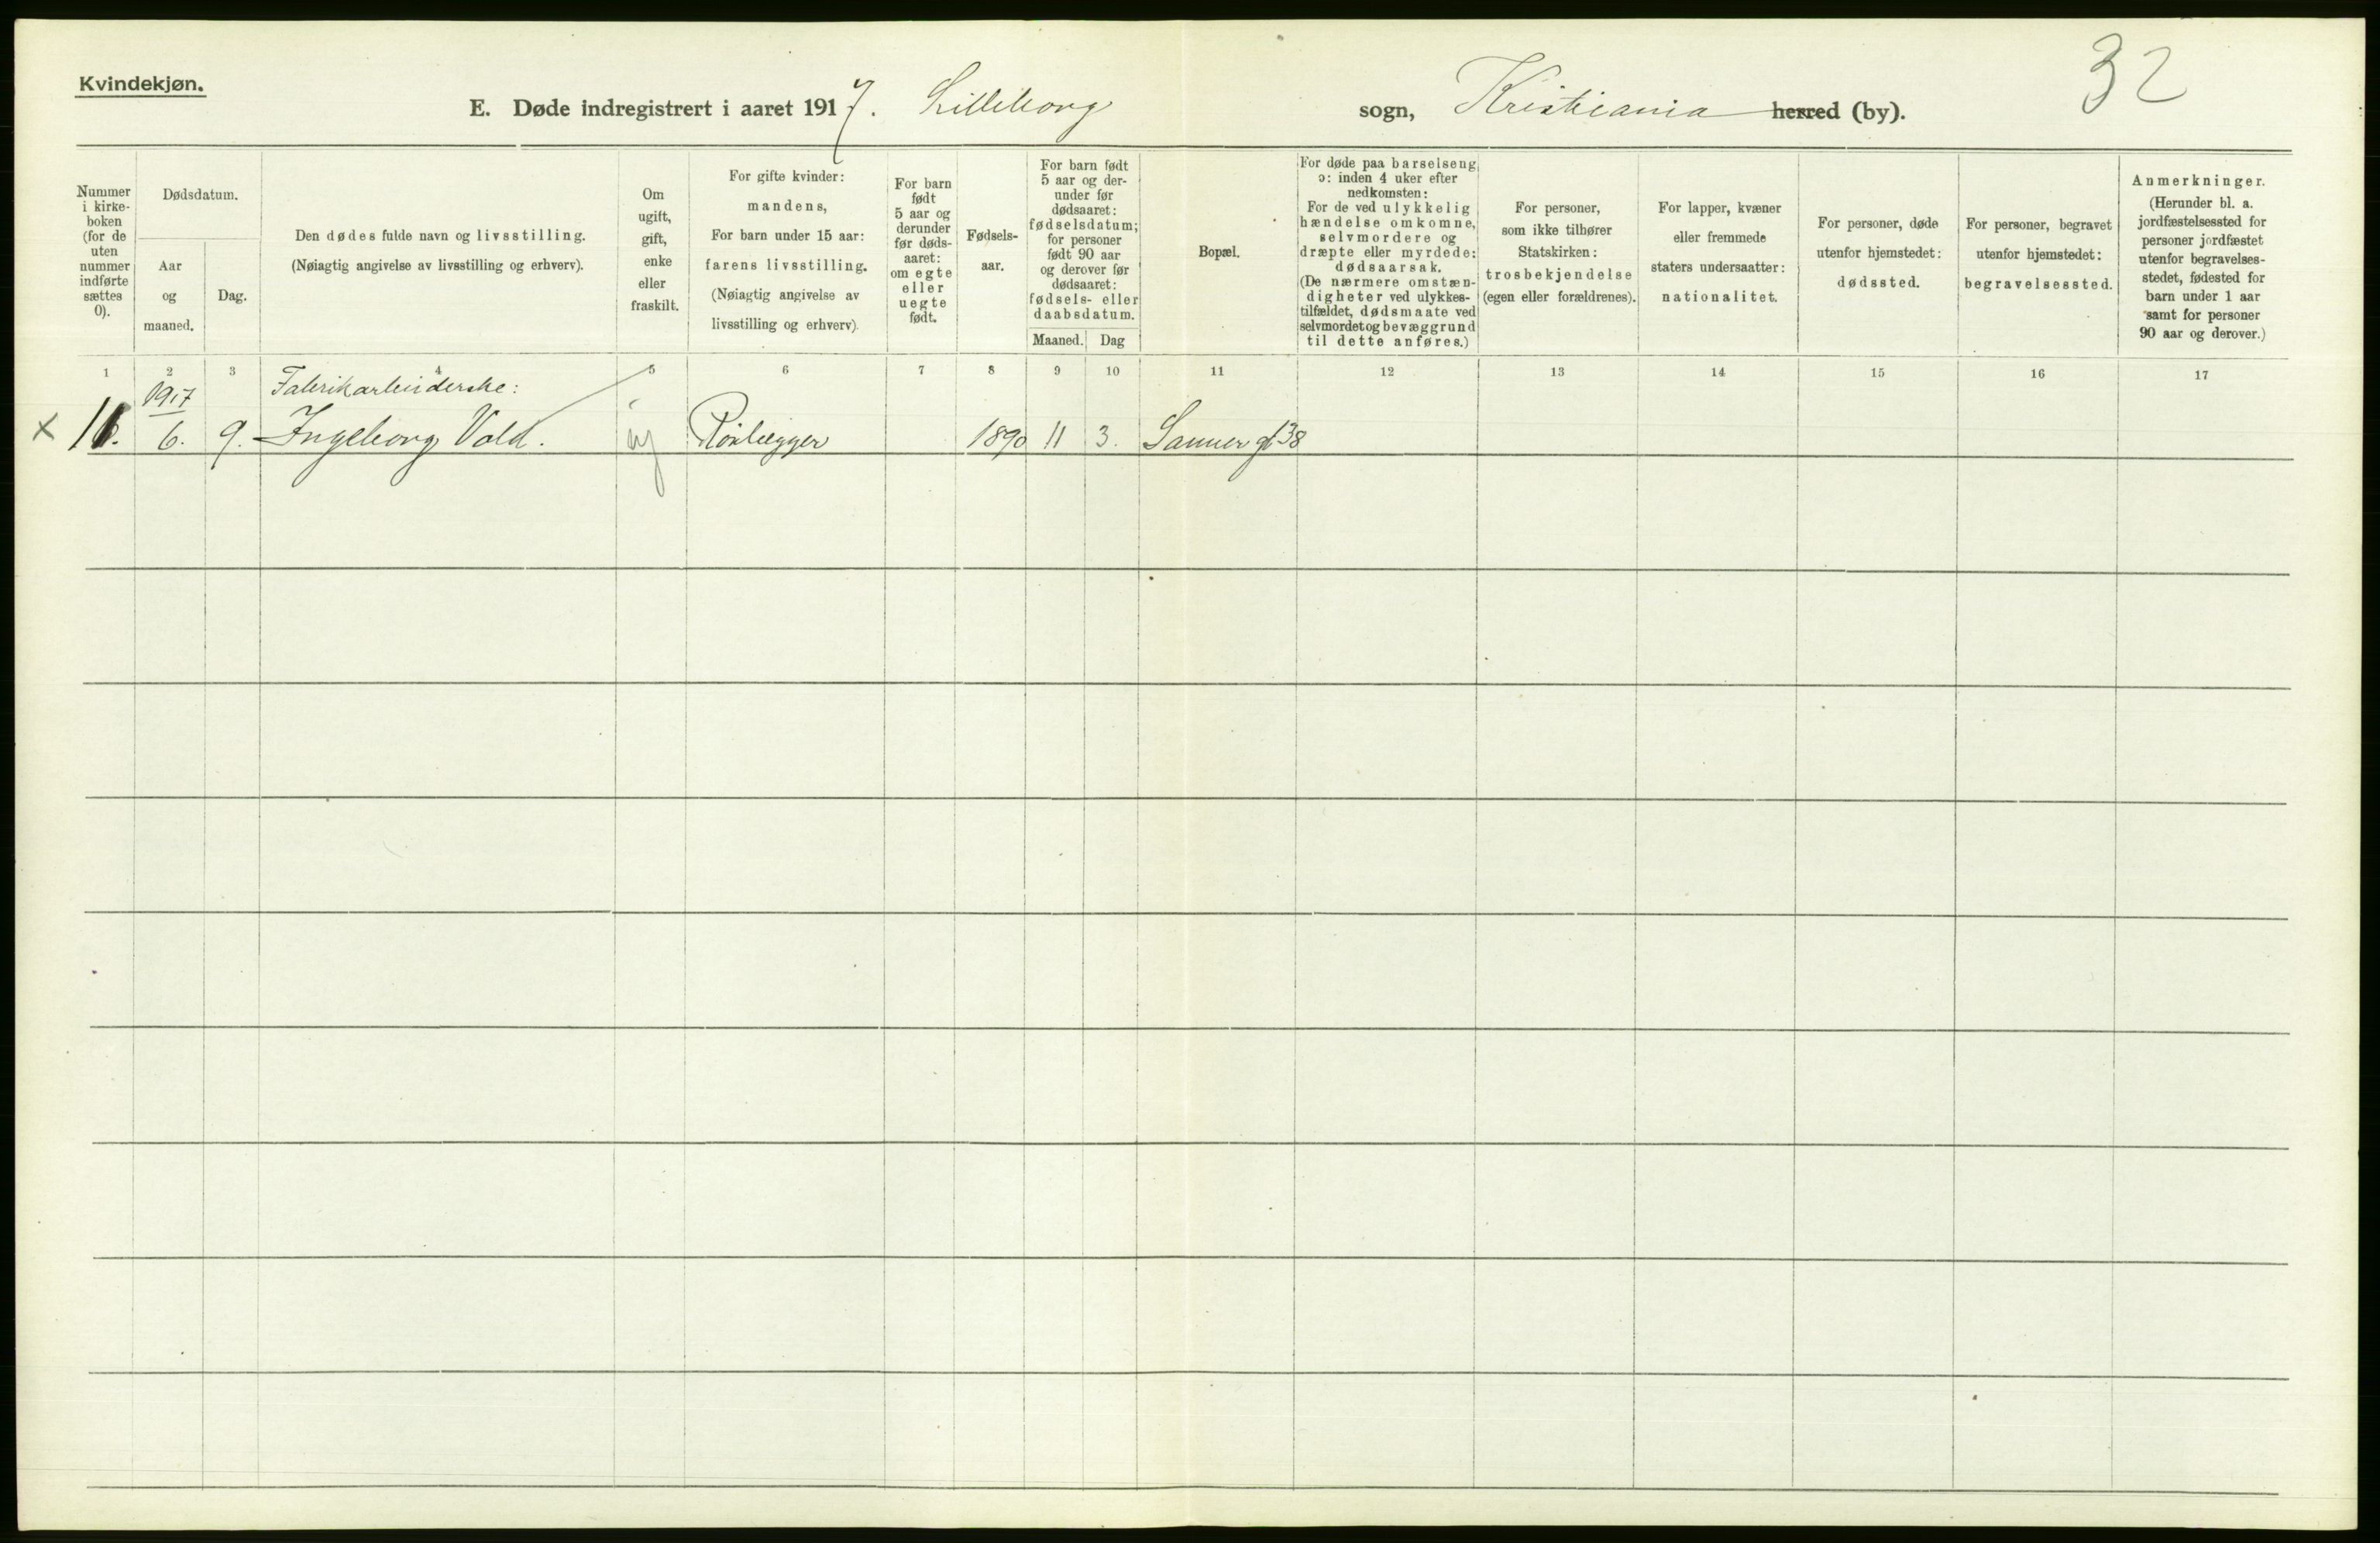 Kvindekjøn.
32
E. Døde indregistrert i aaret 1917. Lilleborg sogn, Kristiania herred (by).
Nummer
i kirke-
boken
(for de
uten
nummer
indførte
sættes
0).
Dødsdatum.
Aar
og
maaned.
Dag.
Den dødes fulde navn og livsstilling.
(Nøiagtig angivelse av livsstilling og erhverv).
Om
ugift,
gift,
enke
eller
fraskilt.
For gifte kvinder:
mandens,
For barn under 15 aar:
farens livsstilling.
(Nøiagtig angivelse av
livsstilling og erhverv).
For barn
født
5 aar og
derunder
før døds-
aaret:
om egte
eller
uegte
født.
Fødsels-
aar.
For barn født
5 aar og der-
under før
dødsaaret:
fødselsdatum;
for personer
født 90 aar
og derover før
dødsaaret:
fødsels- eller
daabsdatum.
Maaned. Dag
Bopæl.
For døde paa barselseng
ɔ: inden 4 uker efter
nedkomsten:
For de ved ulykkelig
hændelse omkomne,
selvmordere og
dræpte eller myrdede:
dødsaarsak.
(De nærmere omstæn-
digheter ved ulykkes-
tilfældet, dødsmaate ved
selvmordet og bevæggrund
til dette anføres.)
For personer,
som ikke tilhører
Statskirken:
trosbekjendelse
(egen eller forældrenes).
For lapper, kvæner
eller fremmede
staters undersaatter:
nationalitet.
For personer, døde
utenfor hjemstedet:
dødssted.
For personer, begravet
utenfor hjemstedet:
begravelsessted.
Anmerkninger.
(Herunder bl. a.
jordfæstelsessted for
personer jordfæstet
utenfor begravelses-
stedet, fødested for
barn under 1 aar
samt for personer
90 aar og derover.)
1 2 3 4 5 6 7 8 9 10 11 12 13 14 15 16 17
1917 Fabrikarbeiderske:
x 6. 9. Ingeborg Vold. ug Rørlægger 1890 11 3. Sanner gt 38